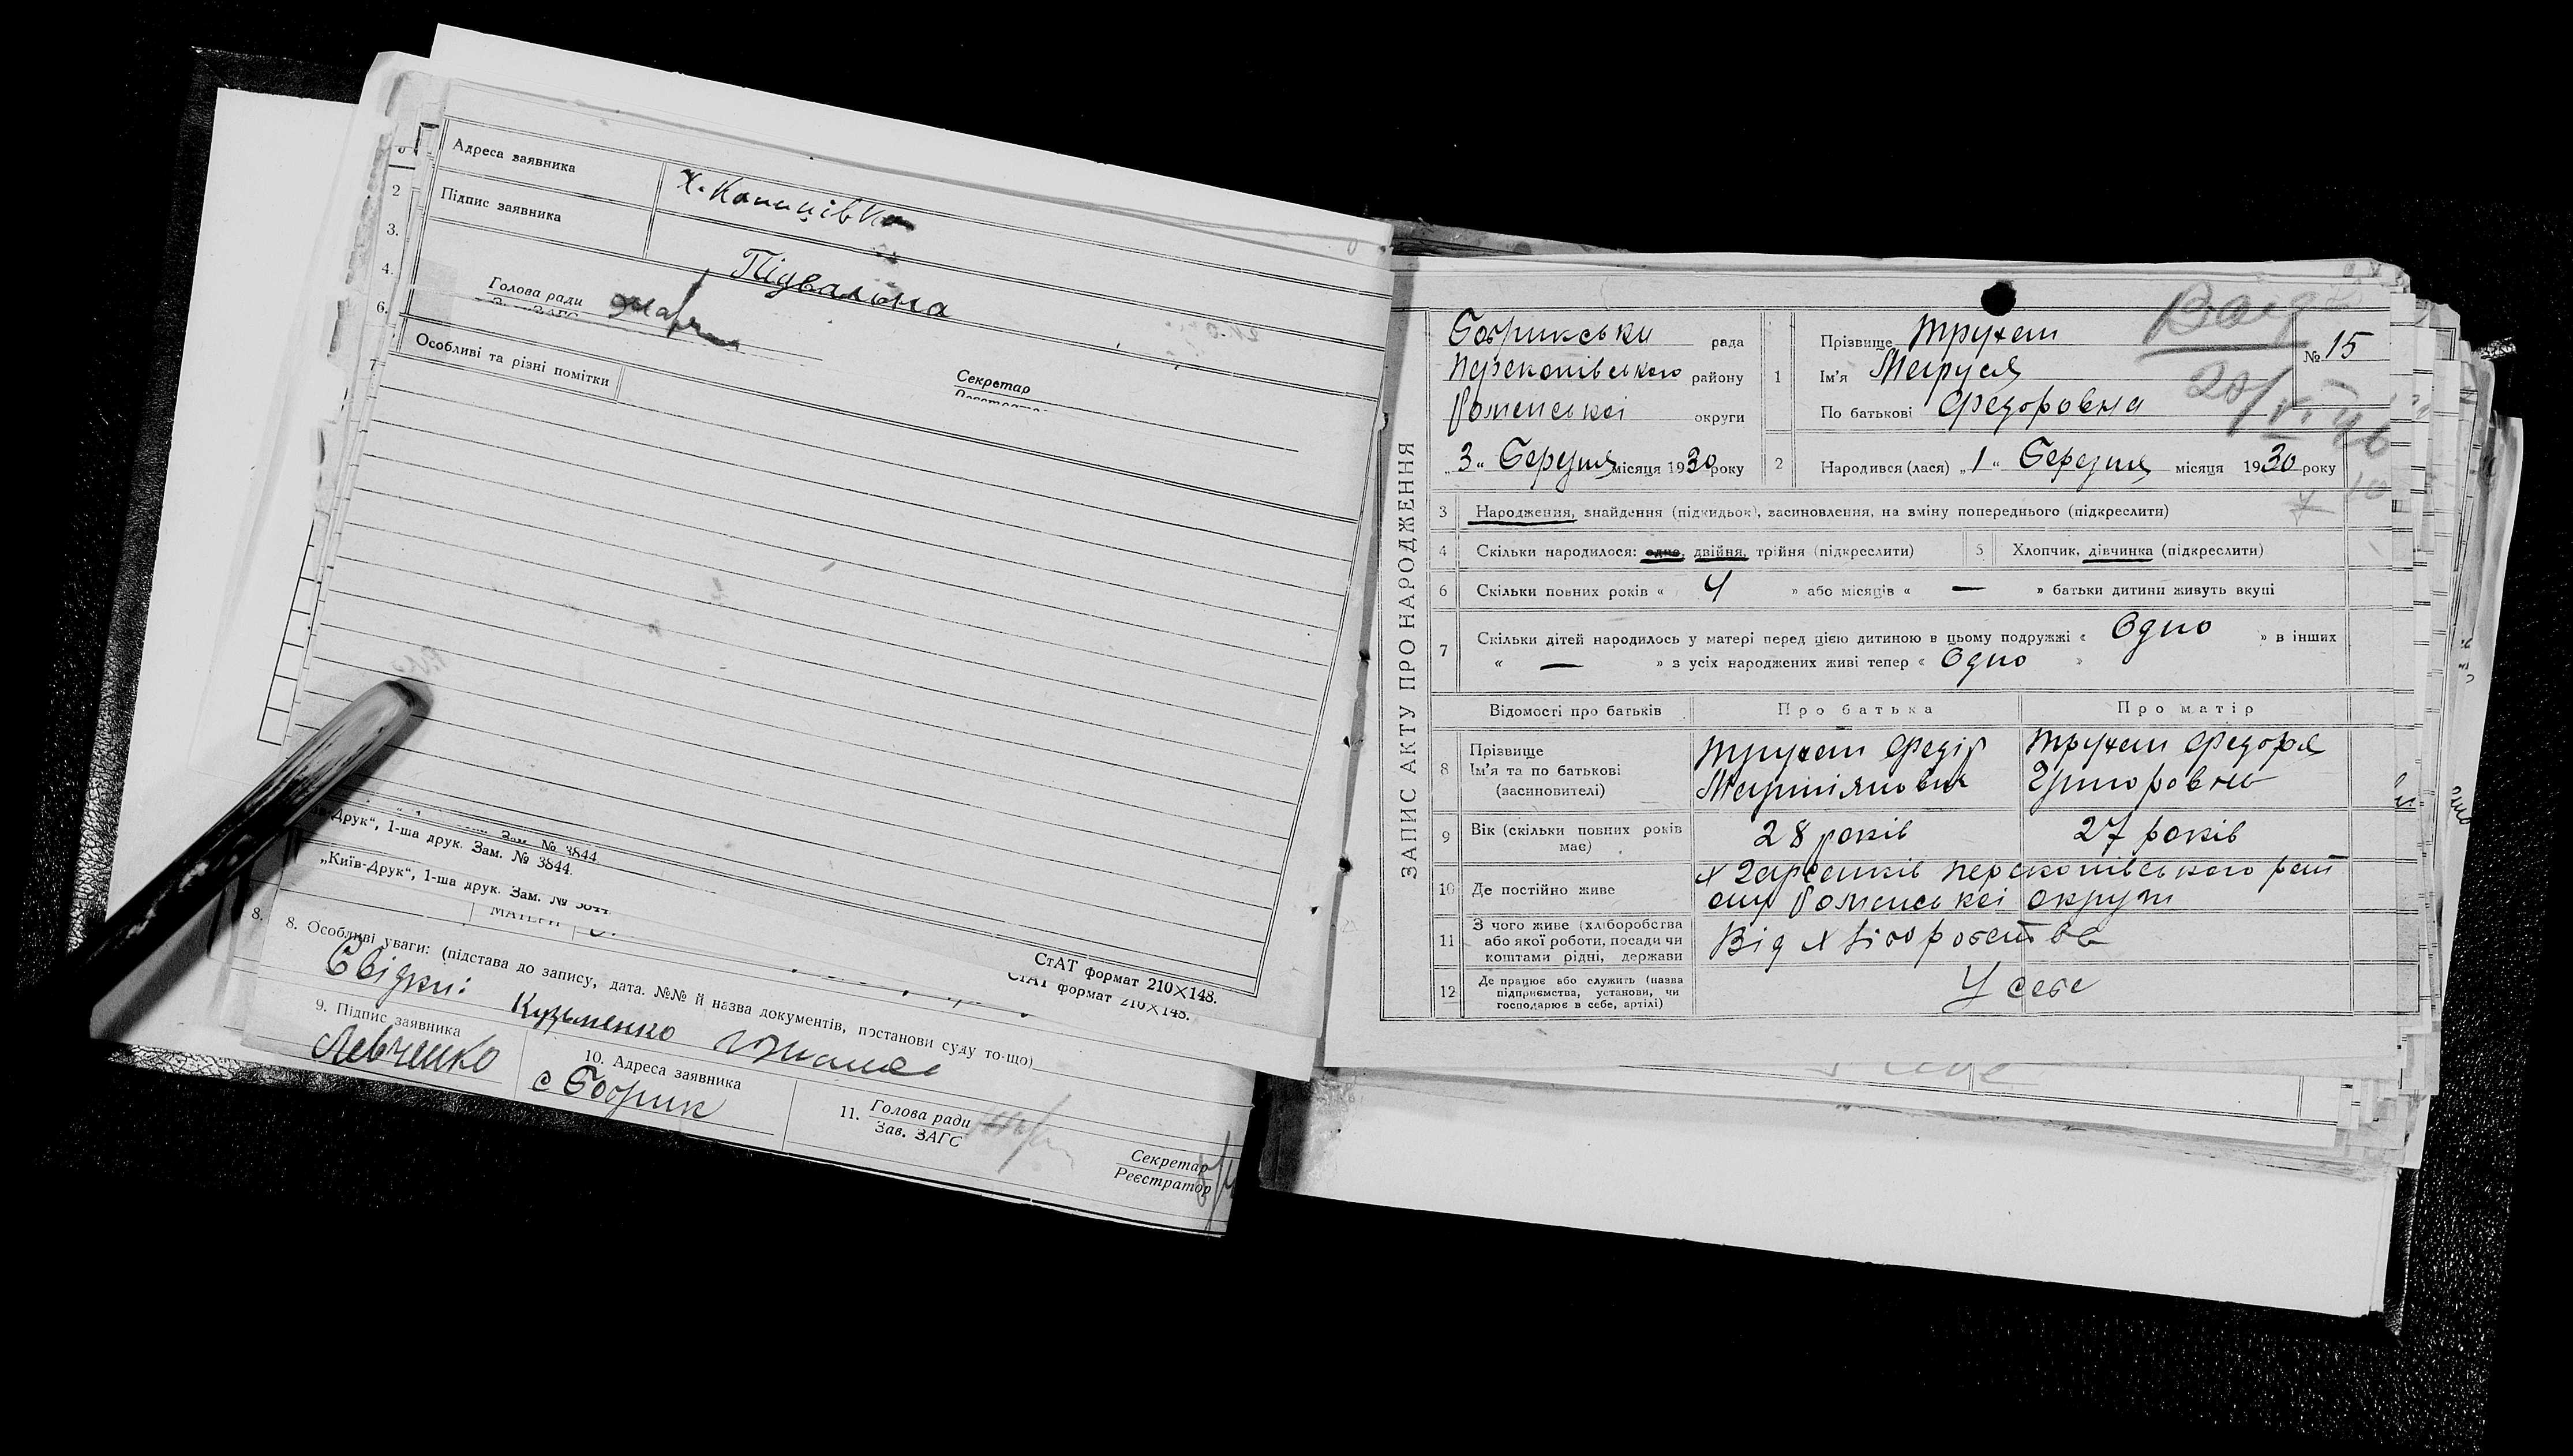 Адреса заявника
Х. Копицівка
Підпис заявника
Підвальна
Голова ради
Секретар
Особливі та різні помітки
2
3.
4.
6.
7
Друк", 1-ша друк. Зам. № 3844.
Зам. № 3844
„Київ-Друк", 1-ша друк. Зам. № 3844
СтАТ формат 210×148.
СтАТ формат 210×148.
8.
8. Особливі уваги: (підстава до запису, дата. №№ й назва документів, постанови суду то-що)
Свідки: Кузьменко
9. Підпис заявника
Левченко
10. Адреса заявника
с Бобрик
11. Голова ради
Зав. ЗАГС
Секретар
Реєстратор
ЗАПИС АКТУ ПРО НАРОДЖЕННЯ
Бобрикська рада
Перекопівського району
Роменської округи
„3" Березня місяця 1930 року
1
Прізвище Трухан
Ім'я Маруся
По батькові Федоровна
№ 15
2 Народився (лася) „1" Березня місяця 1930 року
3 Народження, знайдення (підкидьок), засиновлення, на зміну попереднього (підкреслити)
4 Скільки народилося: одно, двійня, трійня (підкреслити)
5 Хлопчик, дівчинка (підкреслити)
6 Скільки повних років « 4 » або місяців « — » батьки дитини живуть вкупі
7 Скільки дітей народилось у матері перед цією дитиною в цьому подружжі « Одно » в інших
« — » з усіх народжених живі тепер « Одно »
Відомості про батьків
Про батька
Про матір
8 Прізвище
Ім'я та по батькові
(засиновителі)
Трухан Федір
Мартіянович
Трухан Федора
Григоровна
9 Вік (скільки повних років
має)
28 років
27 років
10 Де постійно живе
Перекопівського рай
ону Роменської округи
11 З чого живе (хліборобства
або якої роботи, посади чи
коштами рідні, держави
Від хліборобства
12 Де працює або служить (назва
підприємства, установи, чи
господарює в себе, артілі)
У себе